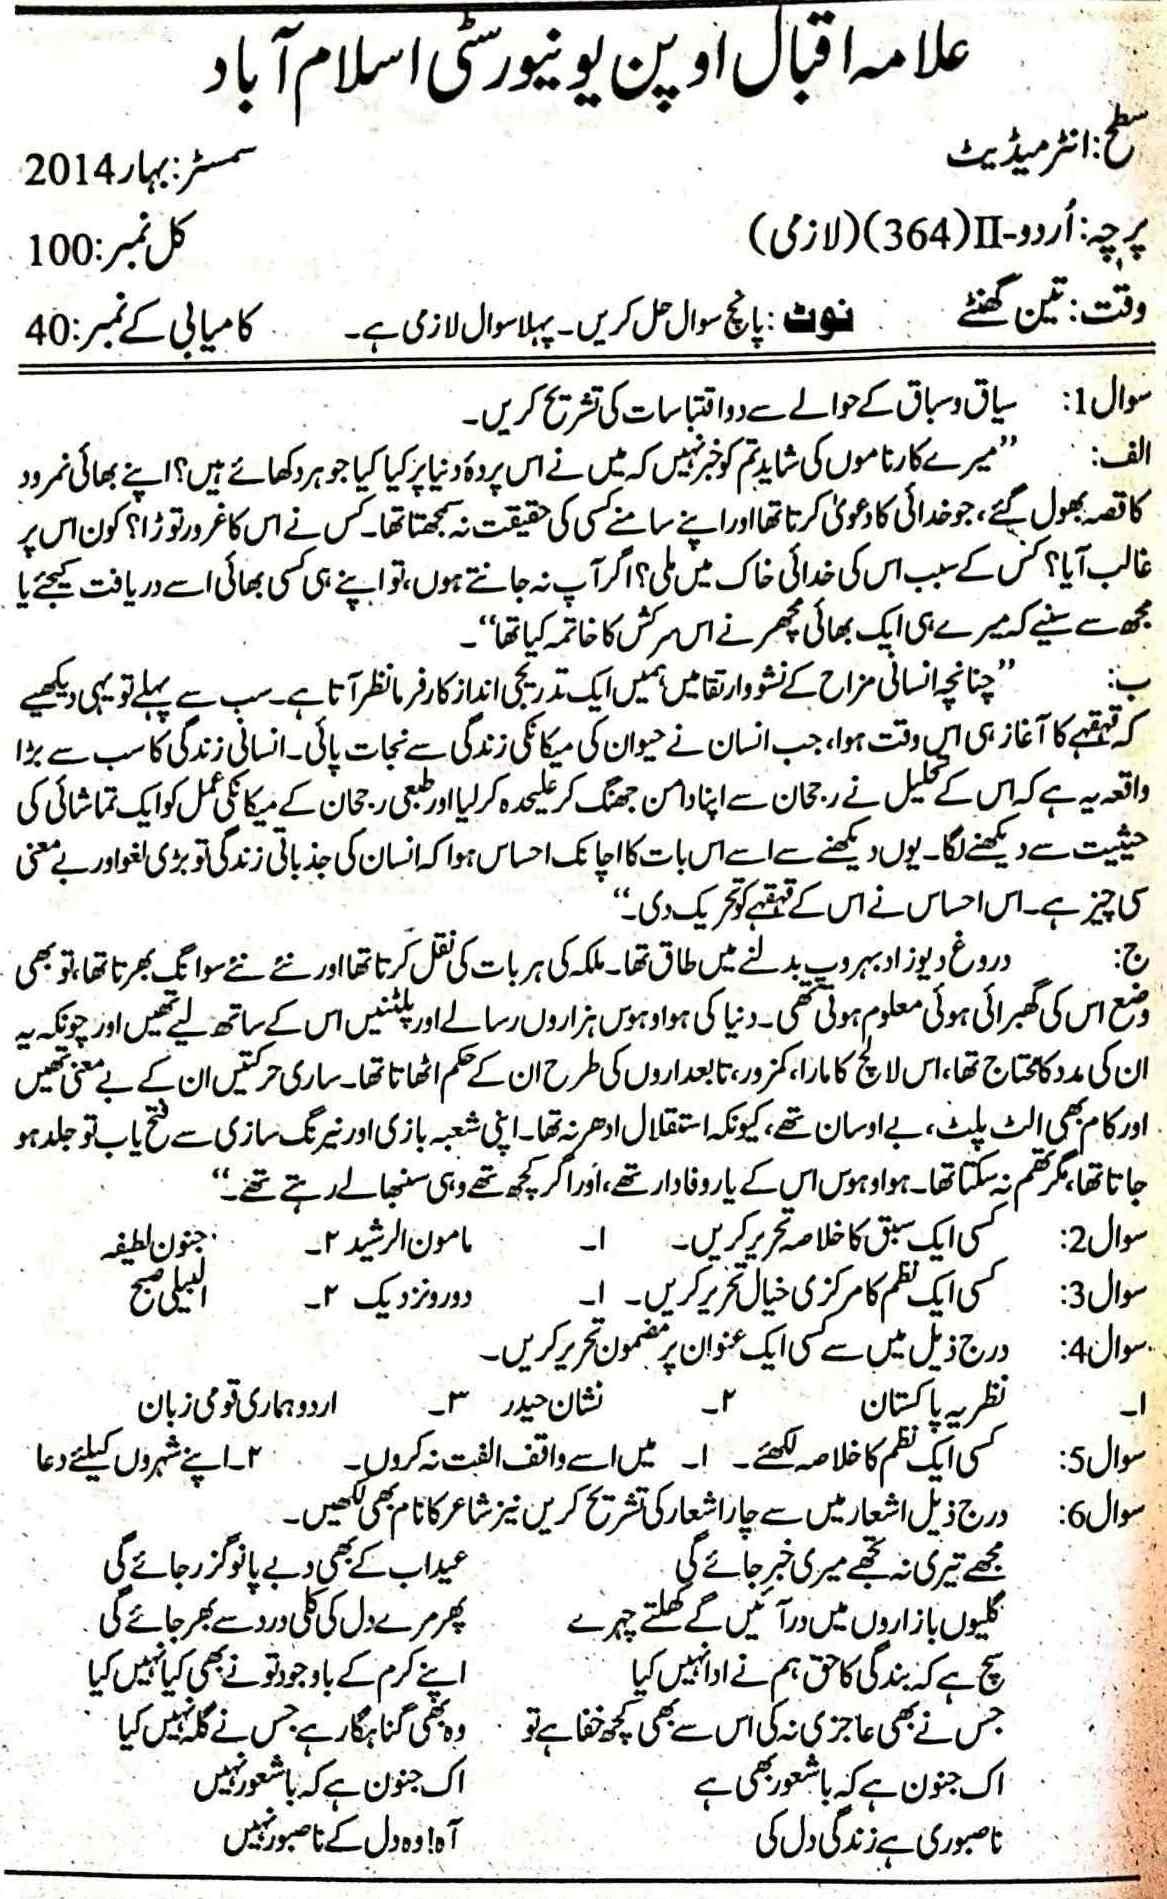 علامہ اقبال اوپن یونیورسٹی اسلام آباد
سطح: انٹرمیڈیٹ سمسٹر: بہار 2014
پرچہ: اُردو-II (364) (لازمی) کل نمبر: 100
وقت: تین گھنٹے نوٹ: پانچ سوال حل کریں۔ پہلا سوال لازمی ہے۔ کامیابی کے نمبر: 40
سوال 1: سیاق و سباق کے حوالے سے دو اقتباسات کی تشریح کریں۔
الف: ”میرے کارناموں کی شاید تم کو خبر نہیں کہ میں نے اس پردۂ دنیا پر کیا کیا جوہر دکھائے ہیں؟ اپنے بھائی نمرود
کا قصہ بھول گئے، جو خدائی کا دعویٰ کرتا تھا اور اپنے سامنے کسی کی حقیقت نہ سمجھتا تھا۔ کس نے اس کا غرور توڑا؟ کون اس پر
غالب آیا؟ کس کے سبب اس کی خدائی خاک میں ملی؟ اگر آپ نہ جانتے ہوں، تو اپنے ہی کسی بھائی اسے دریافت کیجئے یا
مجھ سے سنیے کہ میرے ہی ایک بھائی مچھر نے اس سرکش کا خاتمہ کیا تھا“۔
ب: ”چنانچہ انسانی مزاح کے نشو وارتقا میں ہمیں ایک تدریجی انداز کارفرما نظر آتا ہے۔ سب سے پہلے تو یہی دیکھیے
کہ قہقہے کا آغاز ہی اس وقت ہوا، جب انسان نے حیوان کی میکانکی زندگی سے نجات پائی۔ انسانی زندگی کا سب سے بڑا
واقعہ یہ ہے کہ اس کے تخیل نے رجحان سے اپنا دامن جھٹک کر علیحدہ کر لیا اور طبعی رجحان کے میکانکی عمل کو ایک تماشائی کی
حیثیت سے دیکھنے لگا۔ یوں دیکھنے سے اسے اس بات کا اچانک احساس ہوا کہ انسان کی جذباتی زندگی تو بڑی لغو اور بے معنی
سی چیز ہے۔ اس احساس نے اس کے قہقہے کو تحریک دی۔“
ج: دروغ دیوزاد بہروپ بدلنے میں طاق تھا۔ ملکہ کی ہر بات کی نقل کرتا تھا اور نئے نئے سوانگ بھرتا تھا، تو بھی
وضع اس کی گھبرائی ہوئی معلوم ہوتی تھی۔ دنیا کی ہوا و ہوس ہزاروں رسالے اور پلٹنیں اس کے ساتھ لیے تھیں اور چونکہ یہ
ان کی مدد کا محتاج تھا، اس لالچ کا مارا، کمزور، تابعداروں کی طرح ان کے حکم اٹھاتا تھا۔ ساری حرکتیں ان کے بے معنی تھیں
اور کام بھی الٹ پلٹ، بے اوسان تھے، کیونکہ استقلال ادھر نہ تھا۔ اپنی شعبدہ بازی اور نیرنگ سازی سے فتح یاب تو جلد ہو
جاتا تھا، مگر تھم نہ سکتا تھا۔ ہوا و ہوس اس کے یار وفادار تھے، اور اگر کچھ تھے وہی سنبھالے رہتے تھے۔“
سوال 2: کسی ایک سبق کا خلاصہ تحریر کریں۔ ۱۔ مامون الرشید ۲۔ جنون لطیفہ
سوال 3: کسی ایک نظم کا مرکزی خیال تحریر کریں۔ ۱۔ دور و نزدیک ۲۔ البیلی صبح
سوال 4: درج ذیل میں سے کسی ایک عنوان پر مضمون تحریر کریں۔
۱۔ نظریہ پاکستان ۲۔ نشان حیدر ۳۔ اردو ہماری قومی زبان
سوال 5: کسی ایک نظم کا خلاصہ لکھئے۔ ۱۔ میں اسے واقف الفت نہ کروں۔ ۲۔ اپنے شہروں کیلئے دعا
سوال 6: درج ذیل اشعار میں سے چار اشعار کی تشریح کریں نیز شاعر کا نام بھی لکھیں۔
مجھے تیری نہ تجھے میری خبر جائے گی عید اب کے بھی دبے پانو گزر جائے گی
گلیوں بازاروں میں در آئیں گے کھلتے چہرے پھر مرے دل کی گلی درد سے بھر جائے گی
سچ ہے کہ بندگی کا حق ہم نے ادا نہیں کیا اپنے کرم کے باوجود تو نے بھی کیا نہیں کیا
جس نے بھی عاجزی نہ کی اس سے بھی کچھ خفا ہے تو وہ بھی گناہگار ہے جس نے گلہ نہیں کیا
اک جنون ہے کہ باشعور بھی ہے اک جنون ہے کہ باشعور نہیں
ناصبوری ہے زندگی دل کی آہ! وہ دل کے ناصبور نہیں